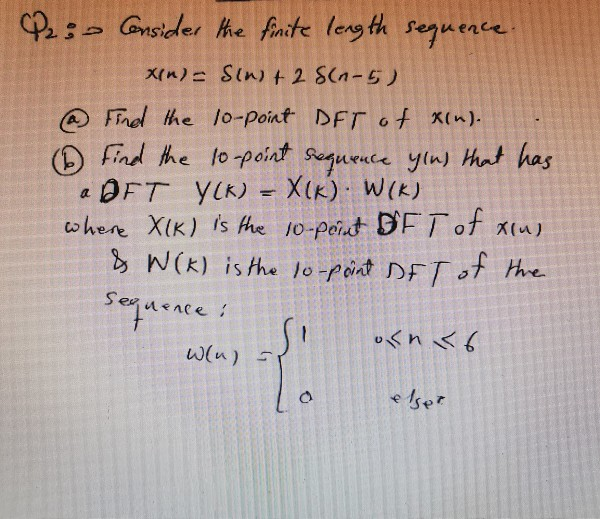 Q2:⇒ Consider the finite length sequence.
x(n) = δ(n) + 2 δ(n-5)
(a) Find the 10-point DFT of x(n).
(b) Find the 10-point sequence y(n) that has
a DFT Y(K) = X(K) · W(K)
where X(K) is the 10-point DFT of x(n)
& W(K) is the 10-point DFT of the
sequence:
w(n) = { 1 0 ≤ n ≤ 6
0 else